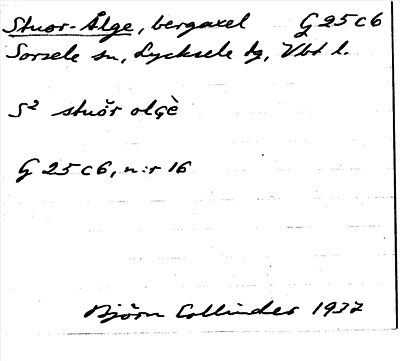 Stuor-Ålge, bergaxel G 25 c 6
Sorsele sn, Lycksele tg, Vbt l.
S² stuǒr olgè
G 25 c 6, n:r 16
Björn Collinder 1937